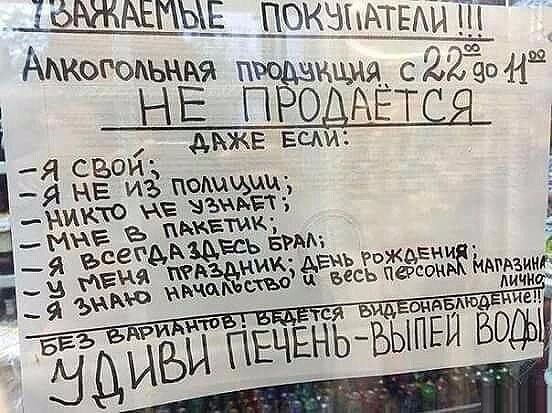 УВАЖАЕМЫЕ ПОКУПАТЕЛИ!!!
АЛКОГОЛЬНАЯ ПРОДУКЦИЯ С 22⁰⁰ до 11⁰⁰
НЕ ПРОДАЁТСЯ
ДАЖЕ ЕСЛИ:
- Я СВОЙ;
- Я НЕ ИЗ ПОЛИЦИИ;
- НИКТО НЕ УЗНАЕТ;
- МНЕ В ПАКЕТИК;
- Я ВСЕГДА ЗДЕСЬ БРАЛ;
- У МЕНЯ ПРАЗДНИК; ДЕНЬ РОЖДЕНИЯ;
- Я ЗНАЮ НАЧАЛЬСТВО И ВЕСЬ ПЕРСОНАЛ МАГАЗИНА
ЛИЧНО
БЕЗ ВАРИАНТОВ! ВЕДЁТСЯ ВИДЕОНАБЛЮДЕНИЕ!!
УДИВИ ПЕЧЕНЬ-ВЫПЕЙ ВОДЫ